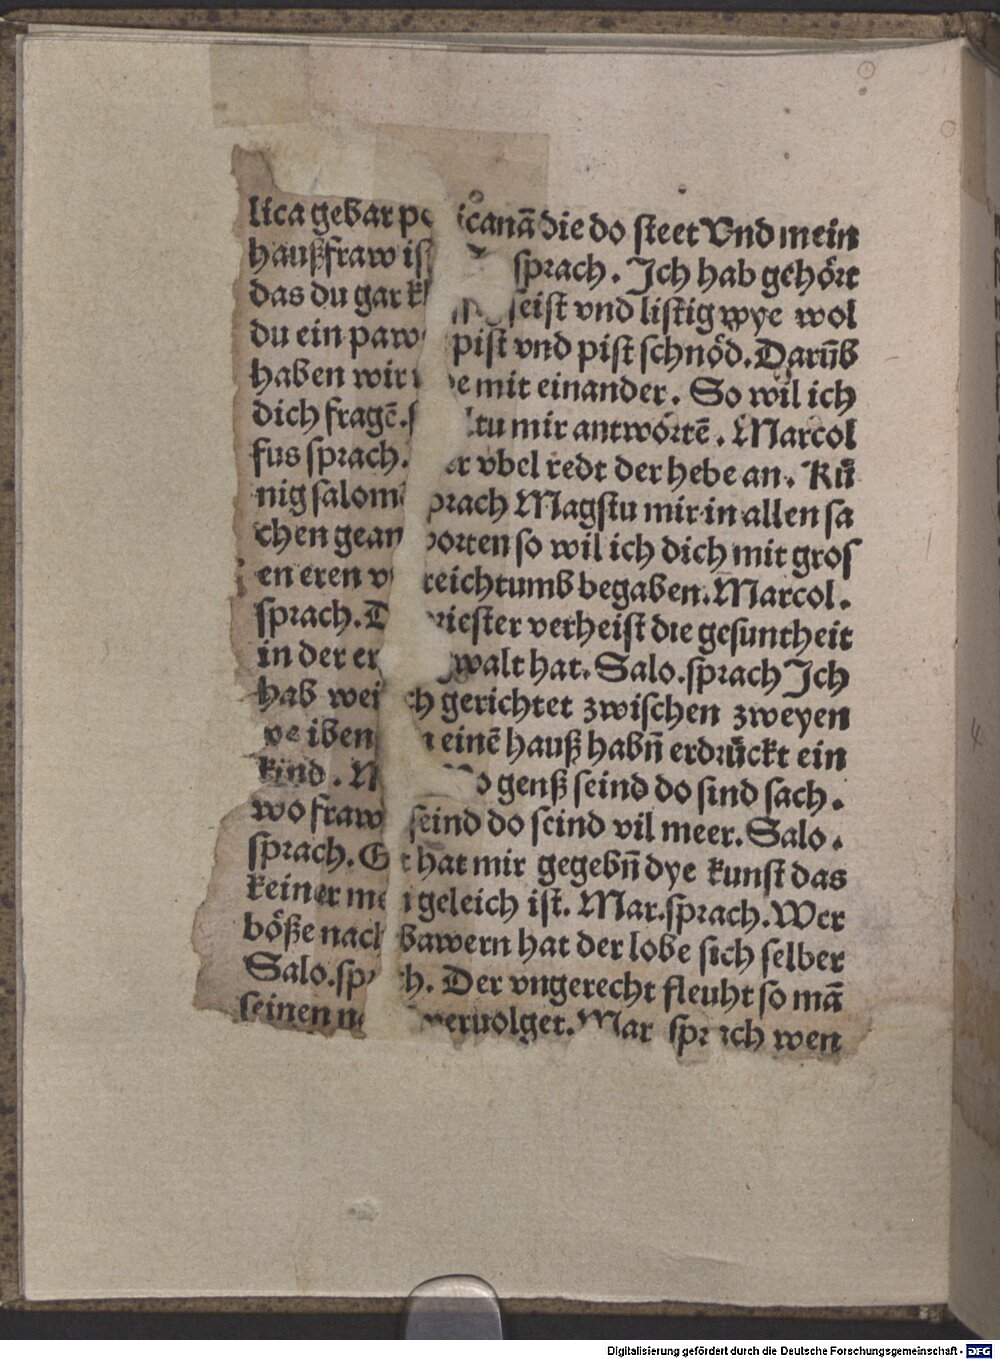 lica gebar po icanā die do steet Vnd mein
haußfraw is sprach. Ich hab gehört
das du gar seist vnd listig wye wol
du ein paw pist vnd pist schnöd. Darūb
haben wir mit einander. So wil ich
dich fragē. ltu mir antwörtē. Marcol
fus sprach. er vbel redt der hebe an. Kü
nig salom prach Magstu mir in allen sa
chen gean worten so wil ich dich mit gros
en eren v reichtumb begaben. Marcol.
sprach. D riester verheist die gesuntheit
in der er walt hat. Salo. sprach Ich
hab wei ch gerichtet zwischen zweyen
we iben einē hauß habn̄ erdrückt ein
kind. M o genß seind do sind sach.
wo fraw seind do seind vil meer. Salo.
sprach. G t hat mir gegebn̄ dye kunst das
keiner me geleich ist. Mar. sprach. Wer
böße nach bawern hat der lobe sich selber
Salo. sp ch. Der vngerecht fleuht so mā
seinen n veruolget. Mar sprach wen
Digitalisierung gefördert durch die Deutsche Forschungsgemeinschaft - DFG